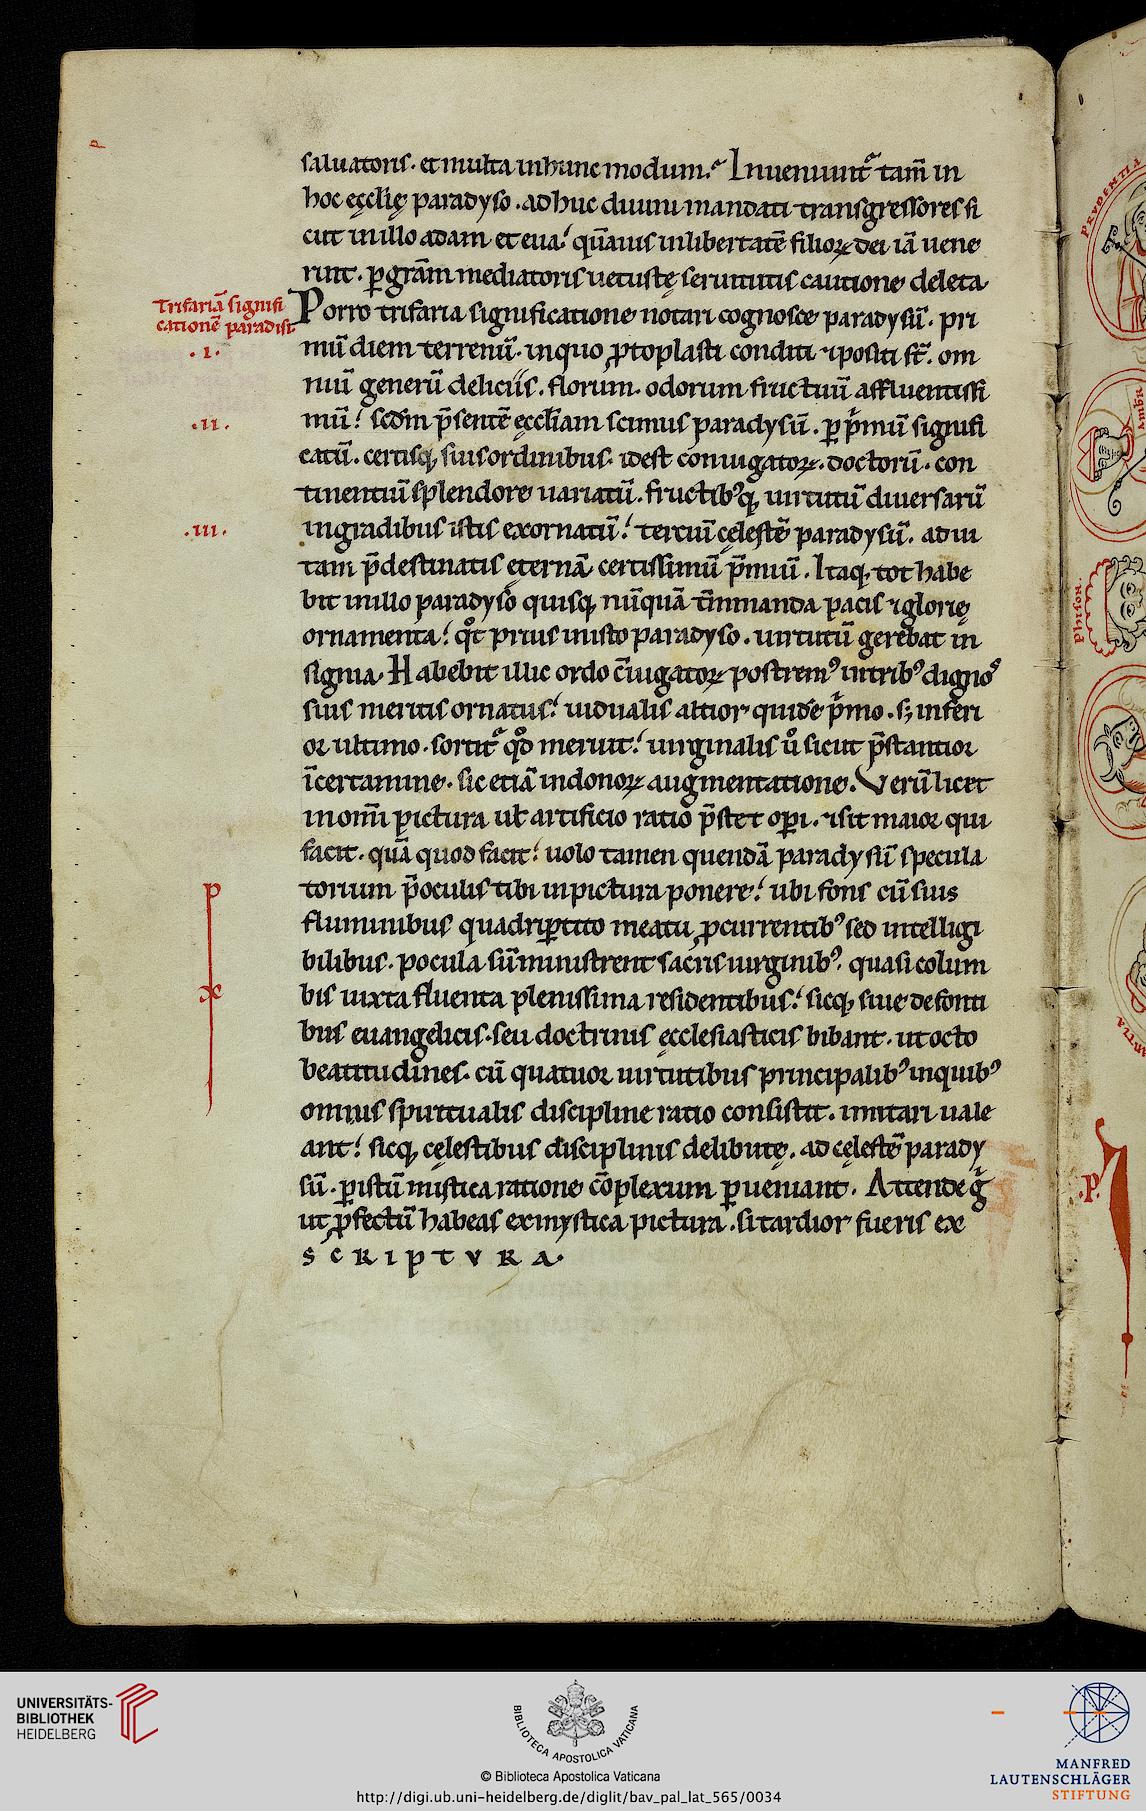 saluatoris. et multa in hunc modum. Inueniunt᷑ tam̅ in
hoc ęcclię paradyso. adhuc diuini mandati transgressores si
cut in illo adam et eua. qua̅uis in libertate̅ filioꝝ dei ia̅ uene
runt. ꝑ gra̅m mediatoris uetustę seruitutis cautione deleta.
Trifaria̅ signifi
catione̅ paradisi
Porro trifaria significatione notari cognosce paradysu̅. pri
.I.
mu̅ diem terrenu̅. in quo ꝓtoplasti conditi ⁊ positi st̅. om
niu̅ generu̅ deliciis. florum. odorum fructuu̅ affluentissi
.II.
mu̅. scd̅m p̅sente̅ ęccl̅iam scimus paradysu̅. ꝑ pͥmu̅ signifi
catu̅. certisq; suis ordinibus. idest coniugatoꝝ. doctoru̅. con
tinentiu̅ splendore uariatu̅. fructibꝰq; uirtutu̅ diuersaru̅
.III.
in gradibus istis exornatu̅. terciu̅ cęleste̅ paradysu̅. ad ui
tam p̅destinatis ęterna̅ certissimu̅ p̅miu̅. Itaq; tot habe
bit in illo paradyso quisq; nu̅qua̅ t̅minanda pacis ⁊ glorię
ornamenta. qͦt prius in isto paradyso. uirtutu̅ gerebat in
signia. Habebit illic ordo c̅iugatoꝝ postremꝰ in tribꝰ dignoꝰ
suis meritis ornatus. uidualis altior quide̅ pͥmo. s; inferi
or ultimo. sortit᷑ qd̊ meruit. uirginalis ů sicut p̅stantior
i̅ certamine. sic etia̅ in donoꝝ augmentatione. Veru̅ licet
in omi̅ pictura ut artificio ratio p̅stet oꝑi. ⁊ sit maior qui
facit. qua̅ quod facit. uolo tamen quenda̅ paradysu̅ specula
p
torium p̅ oculis tibi in pictura ponere. ubi fons cu̅ suis
fluminibus quadriꝑtito meatu ꝓcurrentibꝰ sed intelligi
bilibus. pocula su̅ministrent sacris uirginibꝰ. quasi colum
x
bis iuxta fluenta plenissima residentibus. sicq; siue de fonti
bus euangelicis. seu doctrinis ęcclesiasticis bibant. ut octo
beatitudines. cu̅ quatuor uirtutibus principalibꝰ in quibꝰ
omnis spiritualis discipline ratio consistit. imitari uale
ant. sicq; cęlestibus disciplinis delibutę. ad cęleste̅ parady
su̅. ꝑ istu̅ mistica ratione co̅plexum ꝑueniant. Attende gͥ
ut ꝓfectu̅ habeas ex mystica pictura. si tardior fueris ex
SCRIPTVRA.
PRVDENTIA
.P.
UNIVERSITÄTS-
BIBLIOTHEK
HEIDELBERG
BIBLIOTECA APOSTOLICA VATICANA
© Biblioteca Apostolica Vaticana
http://digi.ub.uni-heidelberg.de/diglit/bav_pal_lat_565/0034
MANFRED
LAUTENSCHLÄGER
STIFTUNG